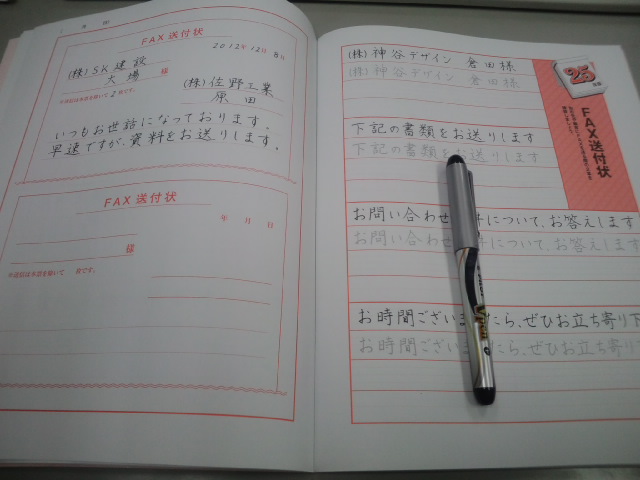 FAX 送付状
2012年12月6日
(株)SK建設
大場 様
(株)佐野工業
原田
※送信は本誌を除いて2枚です。
いつもお世話になっております。
早速ですが、資料をお送りします。
FAX 送付状
年 月 日
様
※送信は本誌を除いて 枚です。
(株)神谷デザイン 倉田様
(株)神谷デザイン 倉田様
下記の書類をお送りします
下記の書類をお送りします
お問い合わせ 件について、お答えします
お問い合わせ 件について、お答えします
お時間ございま たら、ぜひお立ち寄り下
お時間ございま たら、ぜひお立ち寄り下
25
FAX送付状